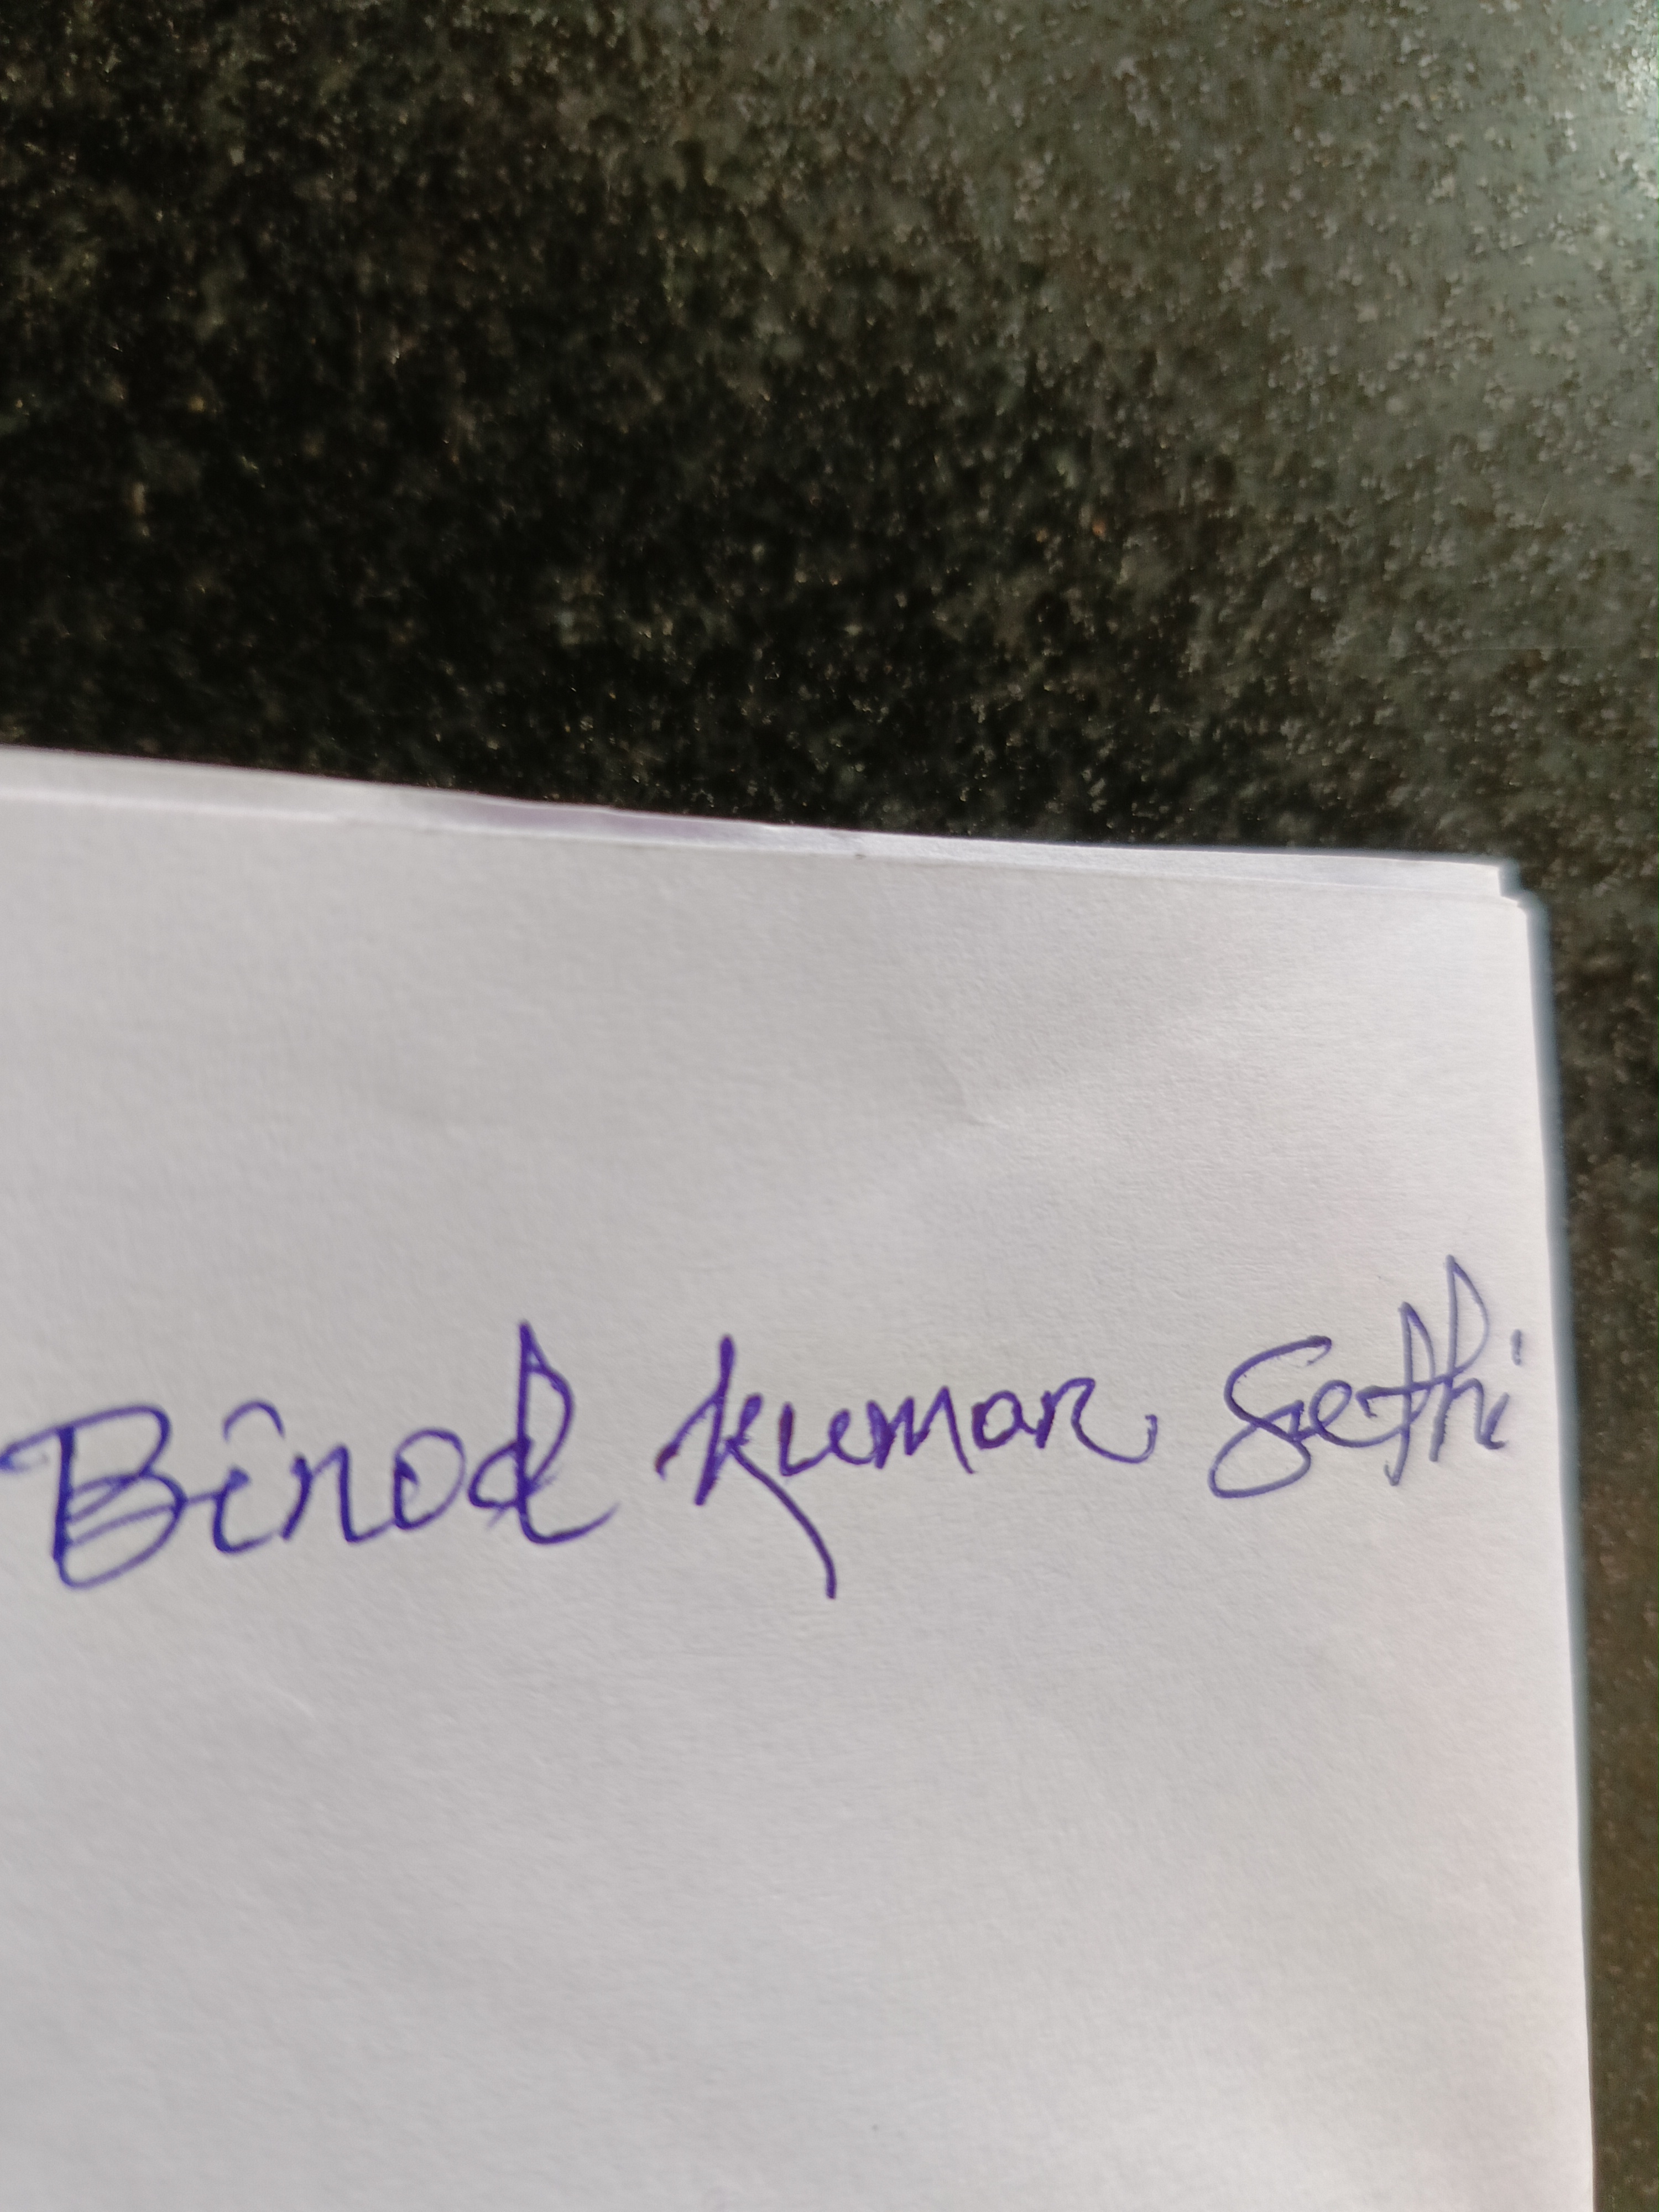 Binod kumar Sethi